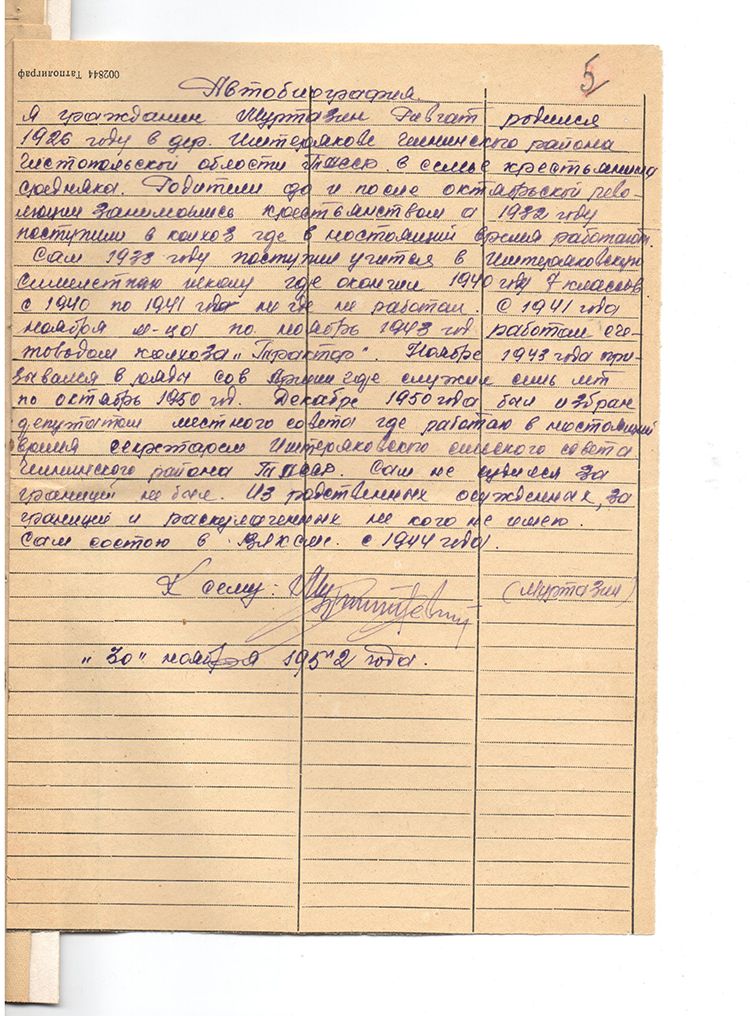 002844 Татполиграф
5
Автобиография
Я гражданин Муртазин Ривгат родился
1926 году в дер. Иштерякове Ципинского района
Чистопольской области ТАССР. в семье крестьянина
средняка. Родители до и после октябрьской рево-
люции занимались крестьянством а 1932 году
поступили в колхоз где в мостоящий время работают.
Сам 1933 году поступил учится в Иштеряковскую
симилетнюю школу где окончил 1940 году 7 классов
с 1940 по 1941 года ни где не работал. С 1941 года
ноября м-ца по ноябрь 1943 год работал сче-
товодом колхоза „Трактор". Ноябре 1943 года при-
зывался в ряды сов Армии где служил семь лет
по октябрь 1950 год. Декабре 1950 года был избран
депутатом местного совета где работаю в мостоящий
время секретарем Иштеряковского сельского совета
района ТАССР. Сам не судился за
границей не был. Из родственных осужденных, за
границей и раскулаченных ни кого не имею.
Сам состою в ВЛКСМ. с 1944 года.
К сему: (Муртазин)
„30" ноября 1952 года.